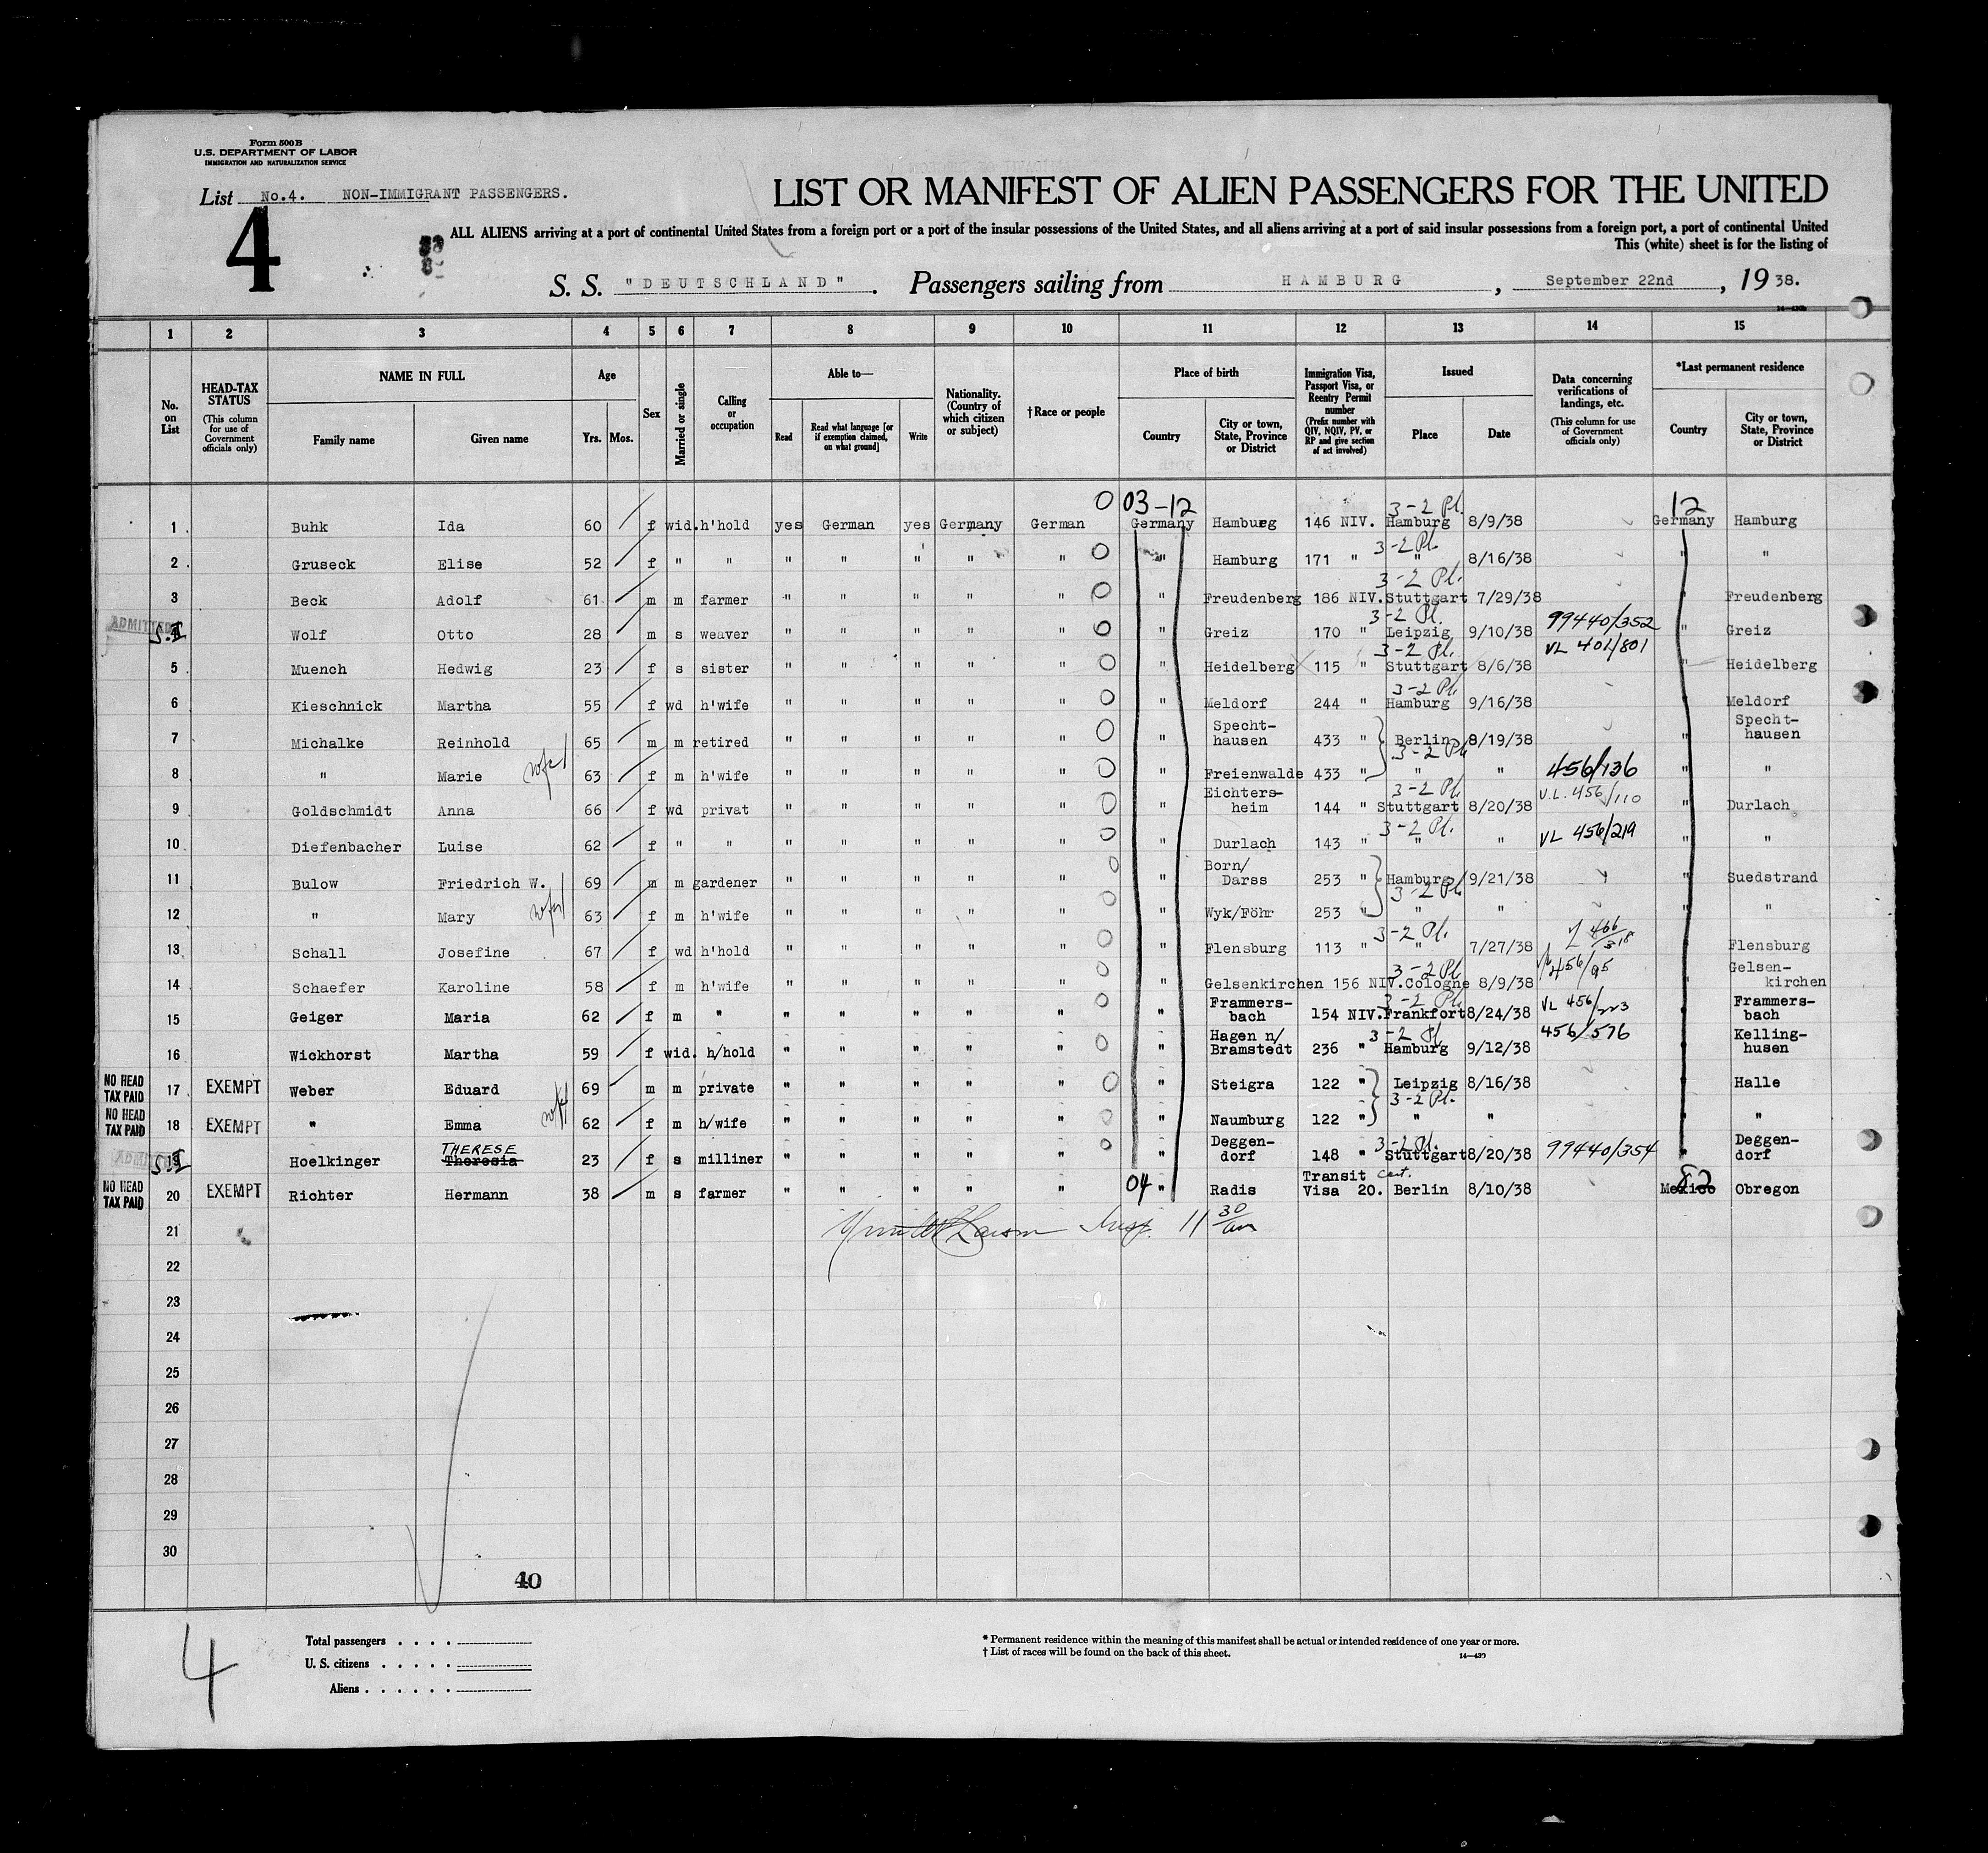 Form 500 B
U.S. DEPARTMENT OF LABOR
IMMIGRATION AND NATURALIZATION SERVICE
List No.4. NON-IMMIGRANT PASSENGERS.
4
LIST OR MANIFEST OF ALIEN PASSENGERS FOR THE UNITED
ALL ALIENS arriving at a port of continental United States from a foreign port or a port of the insular possessions of the United States, and all aliens arriving at a port of said insular possessions from a foreign port, a port of continental United
This (white) sheet is for the listing of
S. S. "DEUTSCHLAND". Passengers sailing from HAMBURG, September 22nd, 19 38.
1 2 3 4 5 6 7 8 9 10 11 12 13 14 15
No. on List
HEAD-TAX STATUS (This column for use of Government officials only)
NAME IN FULL Family name Given name
Age Yrs. Mos.
Sex
Married or single
Calling or occupation
Able to— Read Read what language [or if exemption claimed, on what ground] Write
Nationality. (Country of which citizen or subject)
†Race or people
Place of birth Country City or town, State, Province or District
Immigration Visa, Passport Visa, or Reentry Permit number (Prefix number with QIV, NQIV, PV, or RP and give section of act involved)
Issued Place Date
Data concerning verifications of landings, etc. (This column for use of Government officials only)
*Last permanent residence Country City or town, State, Province or District
0 03-12 3-2 Pl. 12
1 Buhk Ida 60 f wid. h'hold yes German yes Germany German Germany Hamburg 146 NIV. Hamburg 8/9/38 Germany Hamburg
2 Gruseck Elise 52 f " " " " " " " 0 " Hamburg 171 " 3-2 Pl. " 8/16/38 " "
3 Beck Adolf 61 m m farmer " " " " " 0 " Freudenberg 186 NIV. 3-2 Pl. Stuttgart 7/29/38 " Freudenberg
ADMITTED S.I.
4 Wolf Otto 28 m s weaver " " " " " 0 " Greiz 170 " 3-2 Pl. Leipzig 9/10/38 99440/352 " Greiz
5 Muench Hedwig 23 f s sister " " " " " 0 " Heidelberg 115 " 3-2 Pl. Stuttgart 8/6/38 VL 401/801 " Heidelberg
6 Kieschnick Martha 55 f wd h'wife " " " " " 0 " Meldorf 244 " 3-2 Pl. Hamburg 9/16/38 " Meldorf
7 Michalke Reinhold 65 m m retired " " " " " 0 " Spechthausen 433 " Berlin 8/19/38 " Spechthausen
8 " Marie wife 63 f m h'wife " " " " " 0 " Freienwalde 433 " 3-2 Pl. " " 456/136 " "
9 Goldschmidt Anna 66 f wd privat " " " " " 0 " Eichtersheim 144 " 3-2 Pl. Stuttgart 8/20/38 V.L. 456/110 " Durlach
10 Diefenbacher Luise 62 f " " " " " " " 0 " Durlach 143 " 3-2 Pl. " " VL 456/219 " "
11 Bulow Friedrich W. 69 m m gardener " " " " " 0 " Born/Darss 253 " Hamburg 9/21/38 " Suedstrand
12 " Mary wife 63 f m h'wife " " " " " 0 " Wyk/Föhr 253 " 3-2 Pl. " " " "
13 Schall Josefine 67 f wd h'hold " " " " " 0 " Flensburg 113 " 3-2 Pl. " 7/27/38 466/318 " Flensburg
14 Schaefer Karoline 58 f m h'wife " " " " " 0 " Gelsenkirchen 156 NIV. 3-2 Pl. Cologne 8/9/38 456/95 " Gelsenkirchen
15 Geiger Maria 62 f m " " " " " " 0 " Frammersbach 154 NIV. 3-2 Pl. Frankfort 8/24/38 VL 456/223 " Frammersbach
16 Wickhorst Martha 59 f wid. h/hold " " " " " 0 " Hagen n/Bramstedt 236 " 3-2 Pl. Hamburg 9/12/38 456/576 " Kellinghusen
NO HEAD TAX PAID 17 EXEMPT Weber Eduard 69 m m private " " " " " 0 " Steigra 122 " Leipzig 8/16/38 " Halle
NO HEAD TAX PAID 18 EXEMPT " Emma wife 62 f m h/wife " " " " " 0 " Naumburg 122 " 3-2 Pl. " " " "
ADMITTED S.I.
THERESE
19 Hoelkinger Theresia 23 f s milliner " " " " " 0 " Deggendorf 148 " 3-2 Pl. Stuttgart 8/20/38 99440/354 " Deggendorf
NO HEAD TAX PAID 20 EXEMPT Richter Hermann 38 m s farmer " " " " " 04 " Radis Transit cert. Visa 20. Berlin 8/10/38 Mexico Obregon
21 Insp. 11 30/am
22
23
24
25
26
27
28
29
30
40
4
Total passengers
U. S. citizens
Aliens
* Permanent residence within the meaning of this manifest shall be actual or intended residence of one year or more.
† List of races will be found on the back of this sheet.
14—430